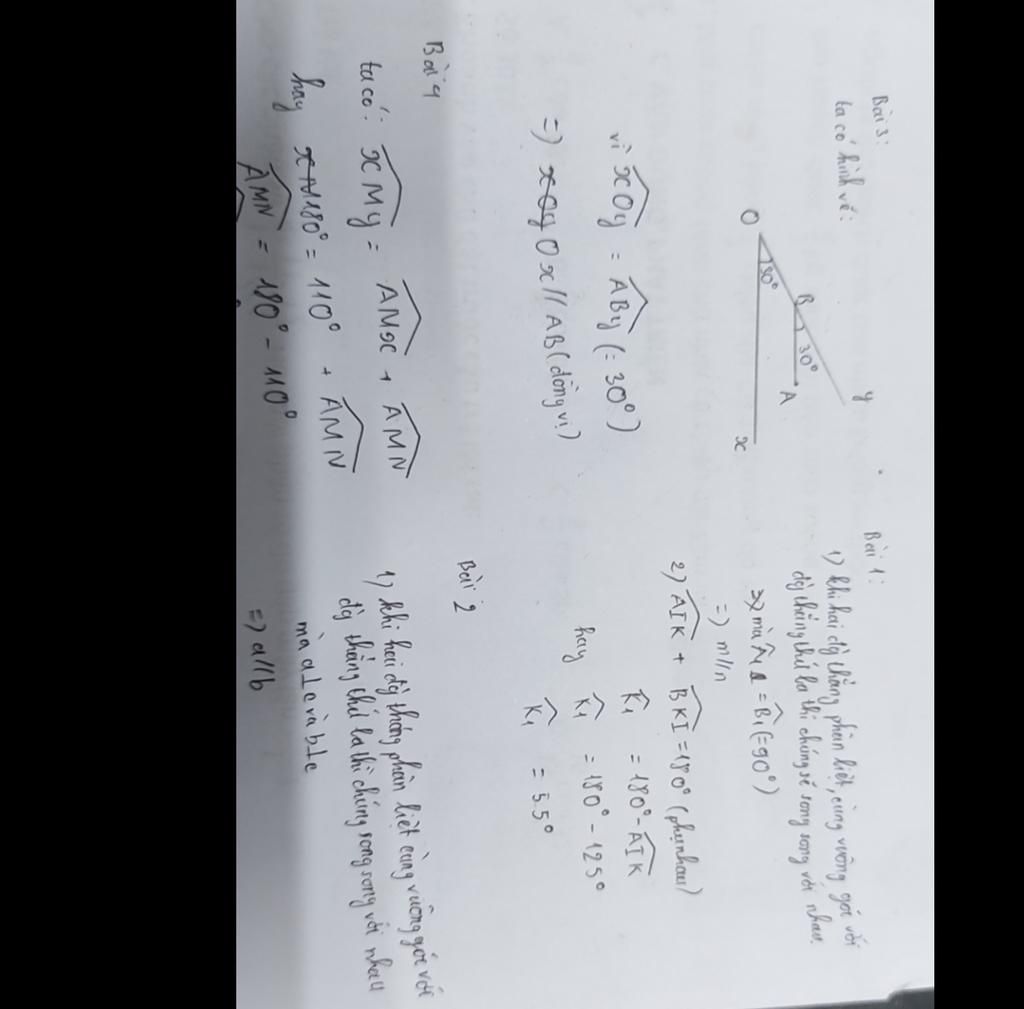 Bài 3:
ta có hình vẽ:
y
B
30°
A
O
30°
x
vì xOy = ABy (= 30°)
=) xOy Ox // AB (đồng vị)
Bài 4
ta có: xMy = AMx + AMN
hay xM180° = 110° + AMN
AMN = 180° - 110°
Bài 1:
1) khi hai đg thẳng phân biệt, cùng vuông góc với
đg thẳng thứ ba thì chúng sẽ song song với nhau.
mà A1 = B1 (= 90°)
=) m//n
2) AIK + BKI = 180° (phụ nhau)
K1 = 180° - AIK
hay K1 = 180° - 125°
K1 = 55°
Bài 2
1) khi hai đg thẳng phân biệt cùng vuông góc với
đg thẳng thứ ba thì chúng song song với nhau
mà a⊥c và b⊥c
=) a//b